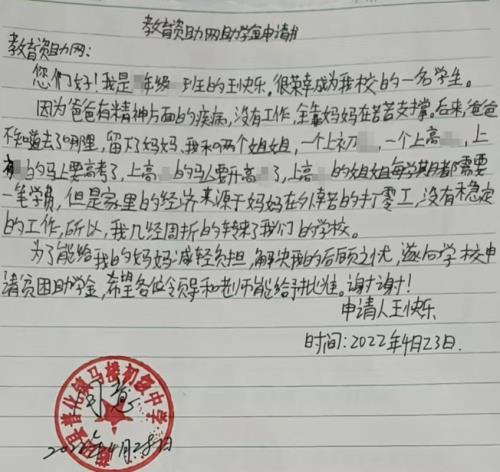 教育资助网助学金申请书
教育资助网：
您们好！我是年级班的王快乐。很荣幸成为我校的一名学生。
因为爸爸有精神方面的疾病，没有工作，全靠妈妈在苦苦支撑。后来，爸爸
不知道去了哪里，留下了妈妈，我和两个姐姐，一个上初，一个上高，上
的马上要高考了，上高的马上要升高了，上高的姐姐每学期都需要
一笔学费，但是家里的经济来源于妈妈在外辛苦的打零工，没有稳定
的工作，所以，我几经周折的转来了我们的学校。
为了能给我的妈妈减轻负担，解决她的后顾之忧，遂向学校申
请贫困助学金，希望各位领导和老师能给予批准。谢谢！
申请人王快乐
时间：2022年4月23日.
普化镇马楼初级中学